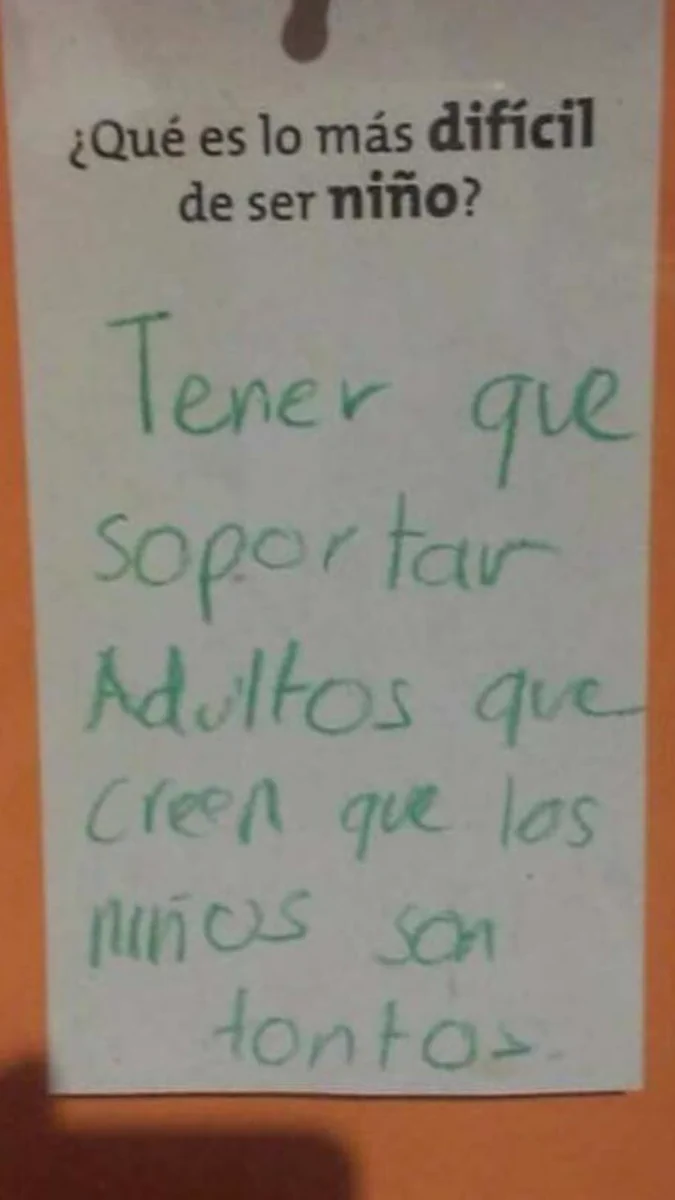 ¿Qué es lo más difícil
de ser niño?
Tener que
soportar
Adultos que
creen que los
niños son
tontos.